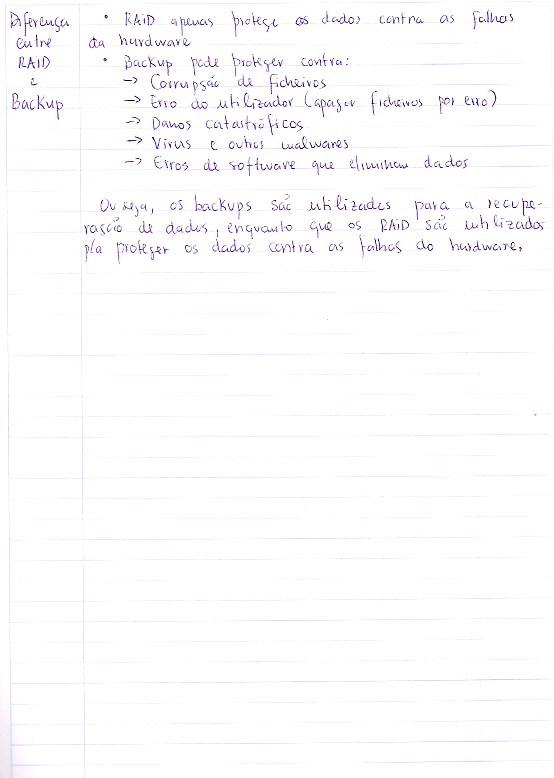 Diferença
entre
RAID
e
Backup
• RAID apenas protege os dados contra as falhas
da hardware
• Backup pode proteger contra:
-> Corrupsão de ficheiros
-> Erro do utilizador (apagar ficheiros por erro)
-> Danos catastróficos
-> Vírus e outros malwares
-> Erros de software que eliminam dados
Ou seja, os backups são utilizados para a recupe-
ração de dados, enquanto que os RAID são utilizados
p/a proteger os dados contra as falhas do hardware.